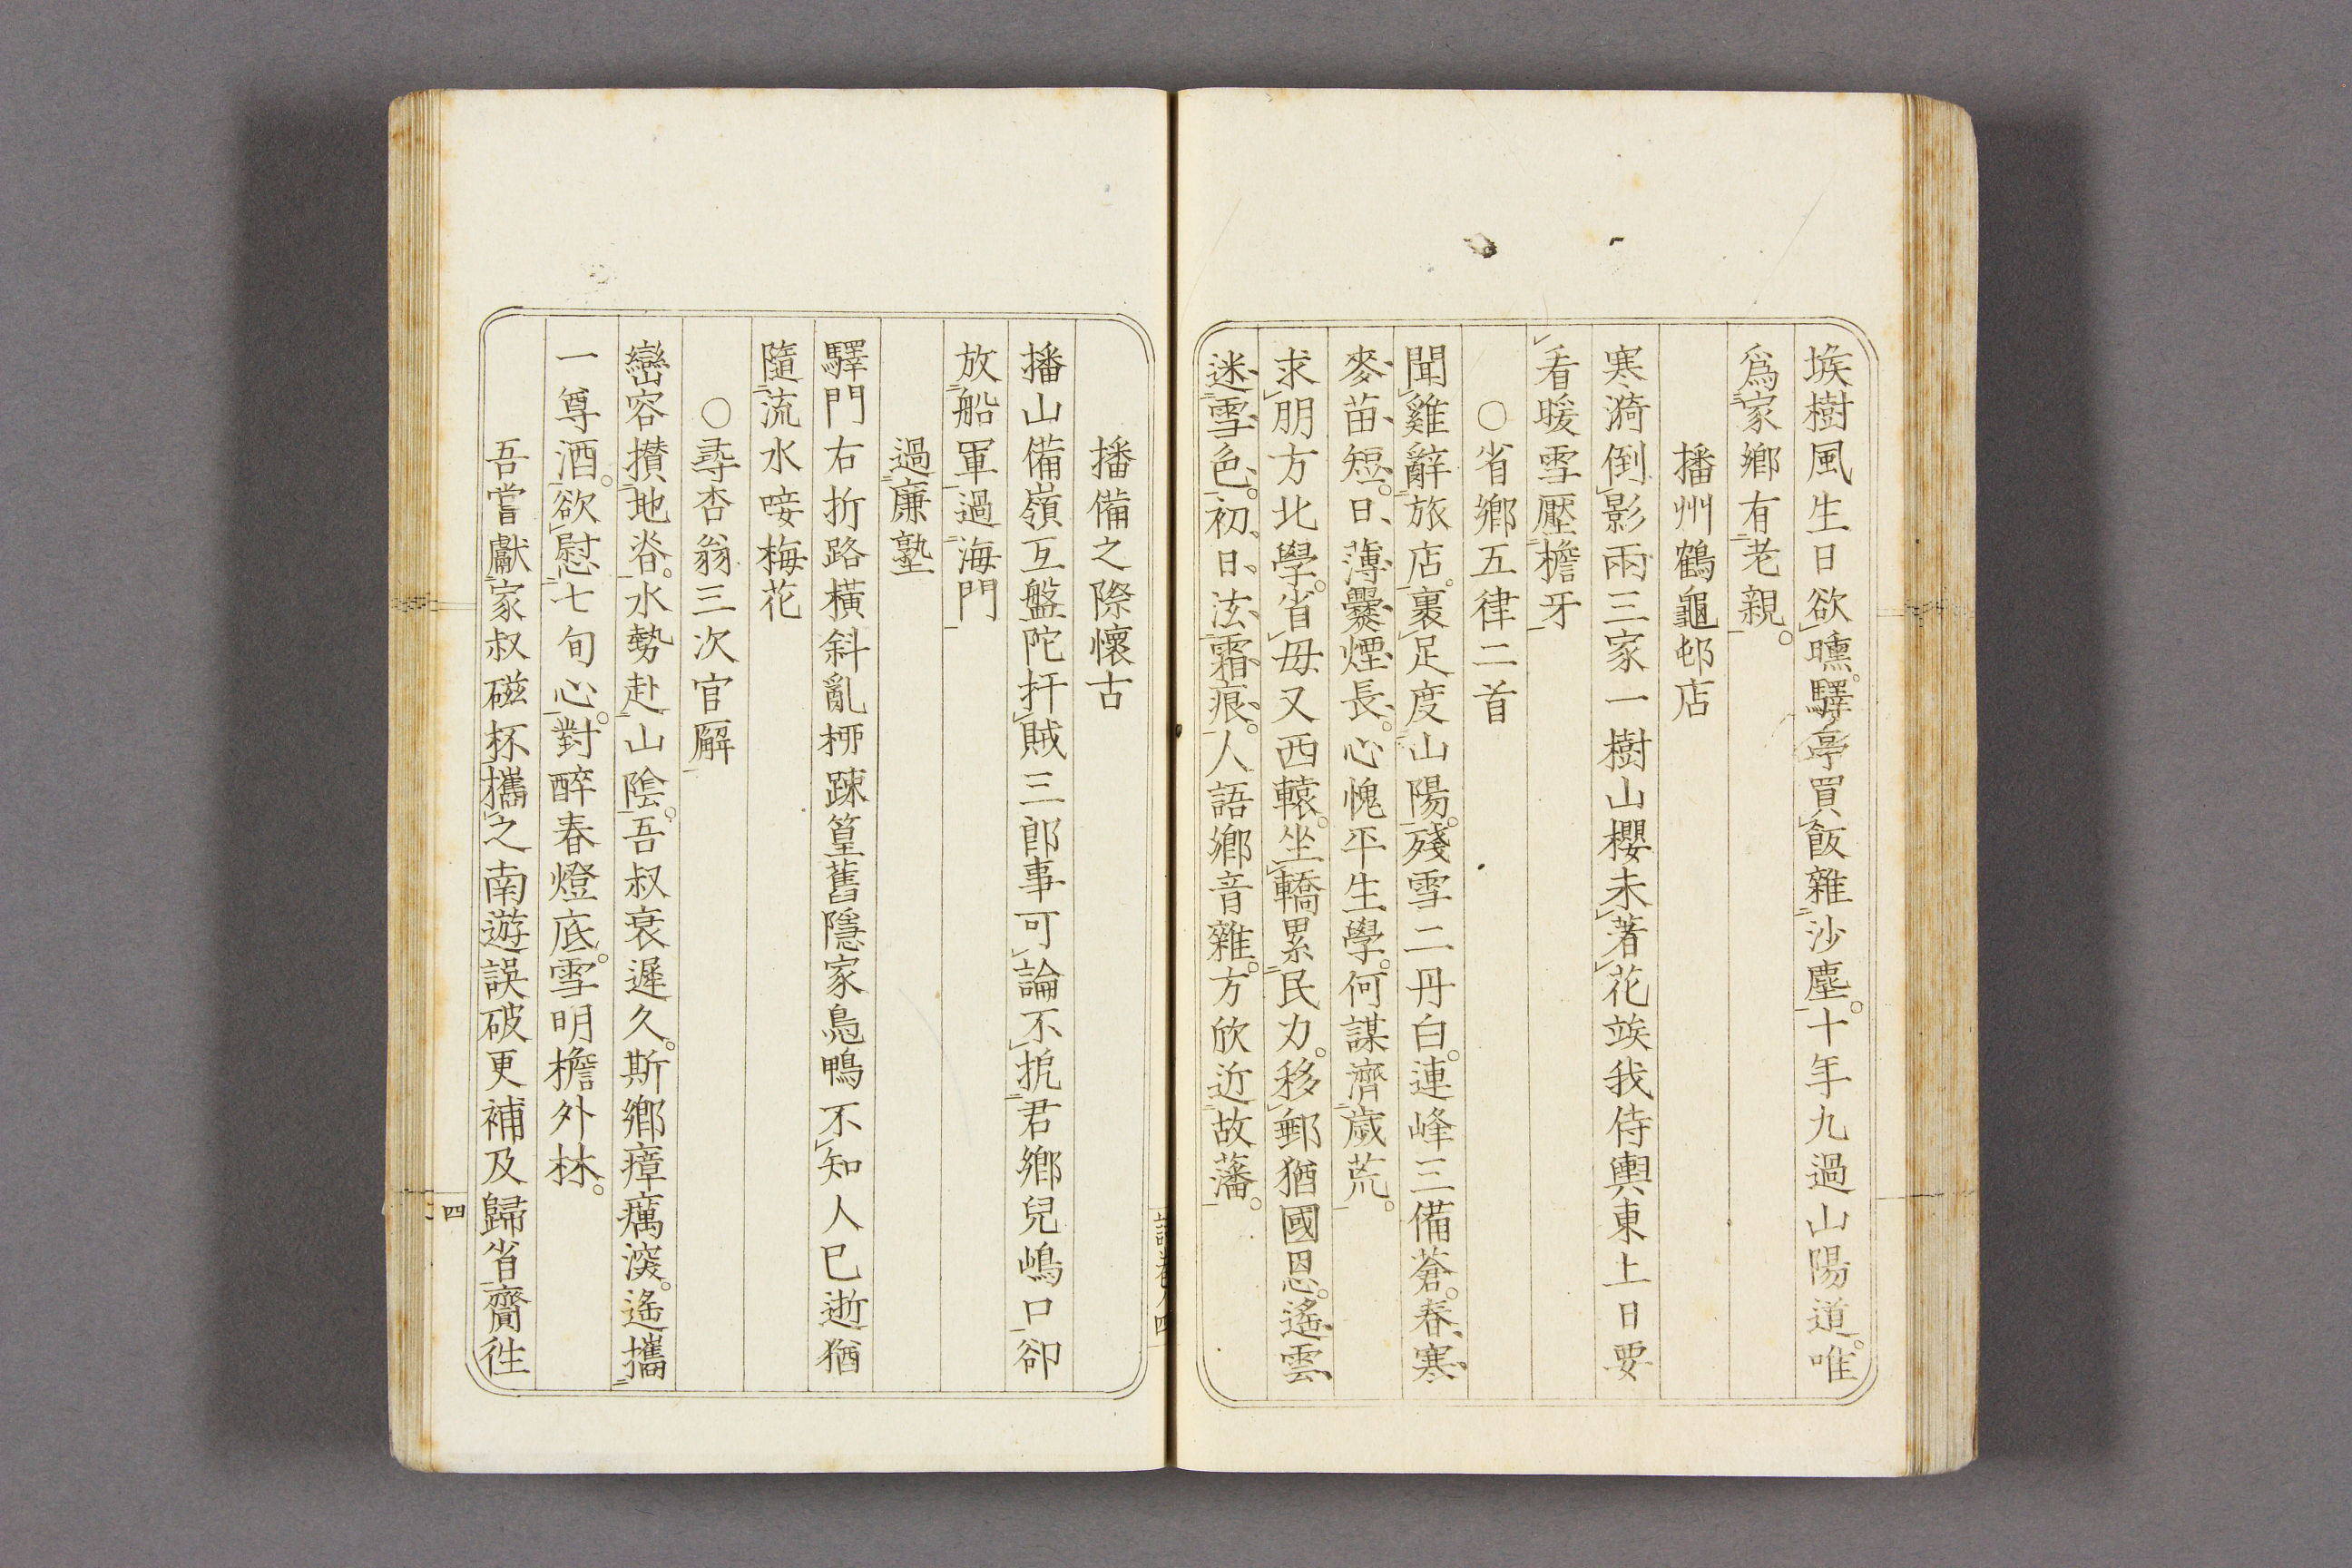 堠樹風生日欲曛。驛亭買飯雜沙塵。十年九過山陽道。唯
爲家鄉有老親。
播州鶴龜邨店
寒漪倒影兩三家一樹山櫻未著花竢我侍輿東上日要
看暖雪壓檐牙
○省鄉五律二首
聞雞辭旅店。裹足度山陽。殘雪二丹白。連峰三備蒼。春寒
麥苗短。日薄爨煙長。心愧平生學。何謀濟歲荒。
求朋方北學。省毋又西轅。坐轎累民力。移郵猶國恩。遙雲
迷雪色。初日泫霜痕。人語鄉音雜。方欣近故藩。
播備之際懷古
播山備嶺互盤陀扞賊三郎事可論不抗君鄉兒嶋口卻
放船軍過海門
過廉塾
驛門右折路橫斜亂桺踈篁舊隱家鳧鴨不知人已逝猶
隨流水唼梅花
○尋杏翁三次官廨
巒容攢地峉。水勢赴山陰。吾叔衰遲久。斯鄉瘴癘深。遙攜
一尊酒。欲慰七旬心。對醉春燈底。雪明檐外林。
吾嘗獻家叔磁杯攜之南遊誤破更補及歸省齎徃
四